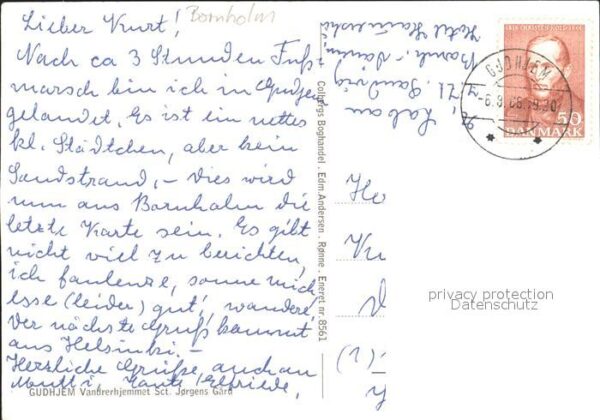 Lieber Kurt!
Bornholm
Nach ca 3 Stunden Fuß-
marsch bin ich in Gudjem
gelandet. Es ist ein nettes
kl. Städtchen, aber kein
Sandstrand, – Dies wird
nun aus Bornholm die
letzte Karte sein. Es gibt
nicht viel zu berichten,
ich faulenze, sonne mich
esse (leider) gut, wandere,
Der nächste Gruß kommt
aus Helsinki. –
Herzliche Grüße, auch an
Mutti, Tante Elfriede,
GUDHJEM Vandrerhjemmet Sct. Jørgens Gård
Colbergs Boghandel . Edm. Andersen . Rønne . Eneret nr. 8561
Hotel
Sandvig
GUDHJEM
50
DANMARK
Ku
privacy protection
Datenschutz